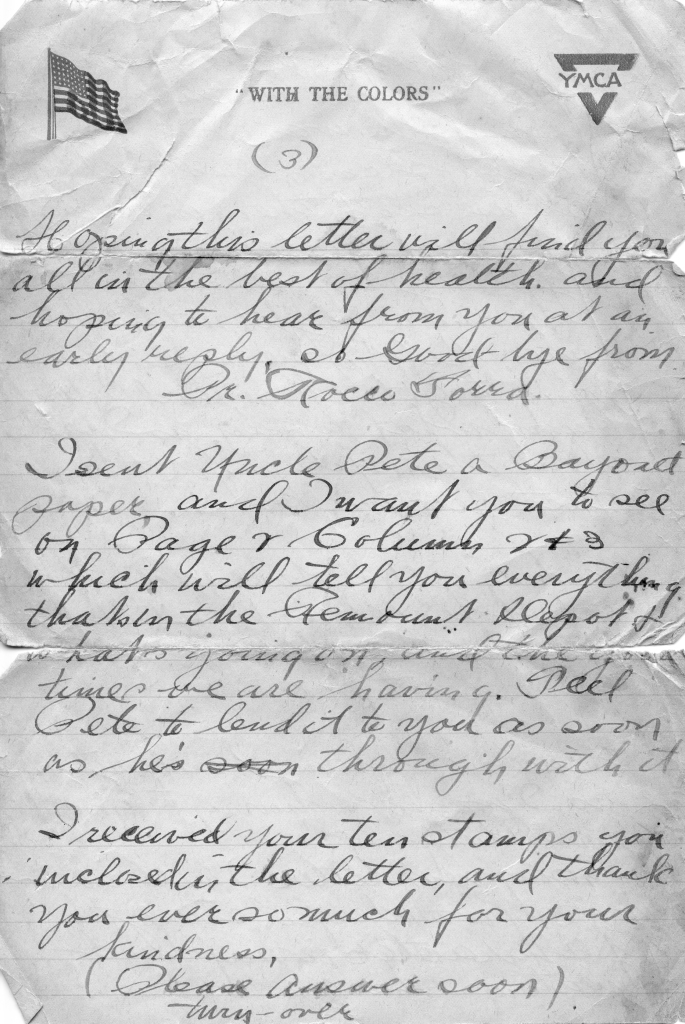 "WITH THE COLORS"
YMCA
(3)
Hoping this letter will find you
all in the best of health. and
hoping to hear from you at an
early reply, so Good bye from
Pr. Rocco Torra.
I sent Uncle Pete a Bayonet
paper and I want you to see
on Page 2 Column 2 + 3
which will tell you everything
thats in the Remount Depot &
whats going on, and the good
times we are having. Tell
Pete to lend it to you as soon
as he's soon through with it
I received your ten stamps you
inclosed in the letter, and thank
you ever so much for your
kindness,
(Please Answer soon)
turn-over